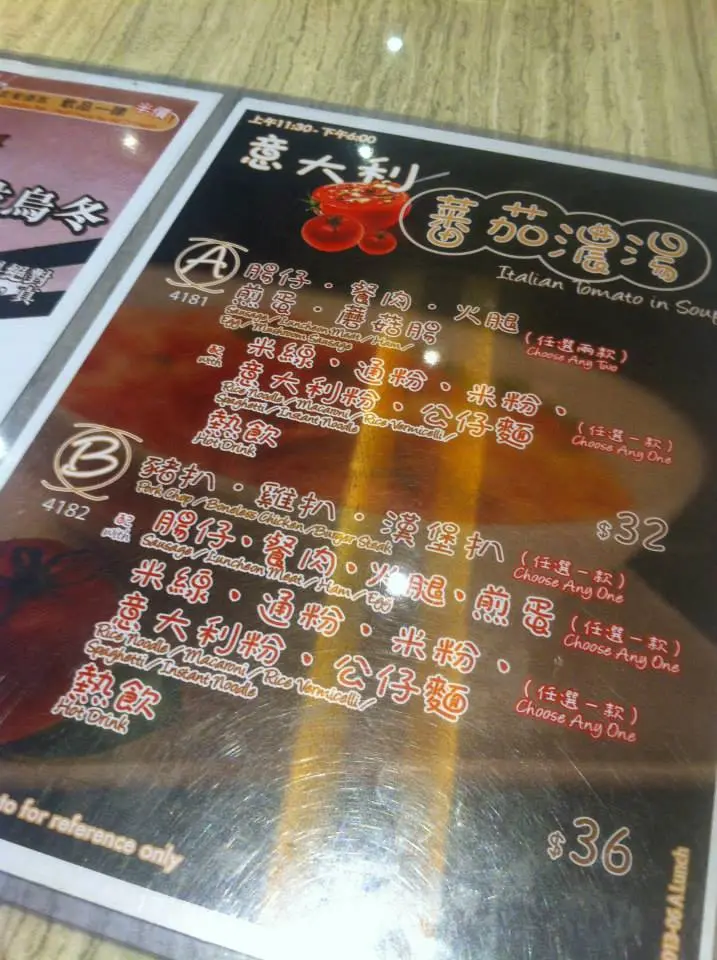 飲品一律半價
烏冬
上午11:30 - 下午6:00
意大利
蕃茄濃湯
Italian Tomato in Soup
A
4181
腸仔·餐肉·火腿
煎蛋·蘑菇腸
(任選兩款)
Sausage/Luncheon Meat/Ham/
Egg/Mushroom Sausage
Choose Any Two
配
with
米線、通粉、米粉、
意大利粉、公仔麵
(任選一款)
Rice Noodle/Macaroni/Rice Vermicelli/
Spaghetti/Instant Noodle
Choose Any One
熱飲
Hot Drink
$32
B
4182
豬扒·雞扒·漢堡扒
(任選一款)
Pork Chop/Boneless Chicken/Burger Steak
Choose Any One
配
with
腸仔·餐肉·火腿·煎蛋
(任選一款)
Sausage/Luncheon Meat/Ham/Egg
Choose Any One
米線·通粉·米粉、
意大利粉、公仔麵
(任選一款)
Rice Noodle/Macaroni/Rice Vermicelli/
Spaghetti/Instant Noodle
Choose Any One
熱飲
Hot Drink
$36
to for reference only
A Lunch